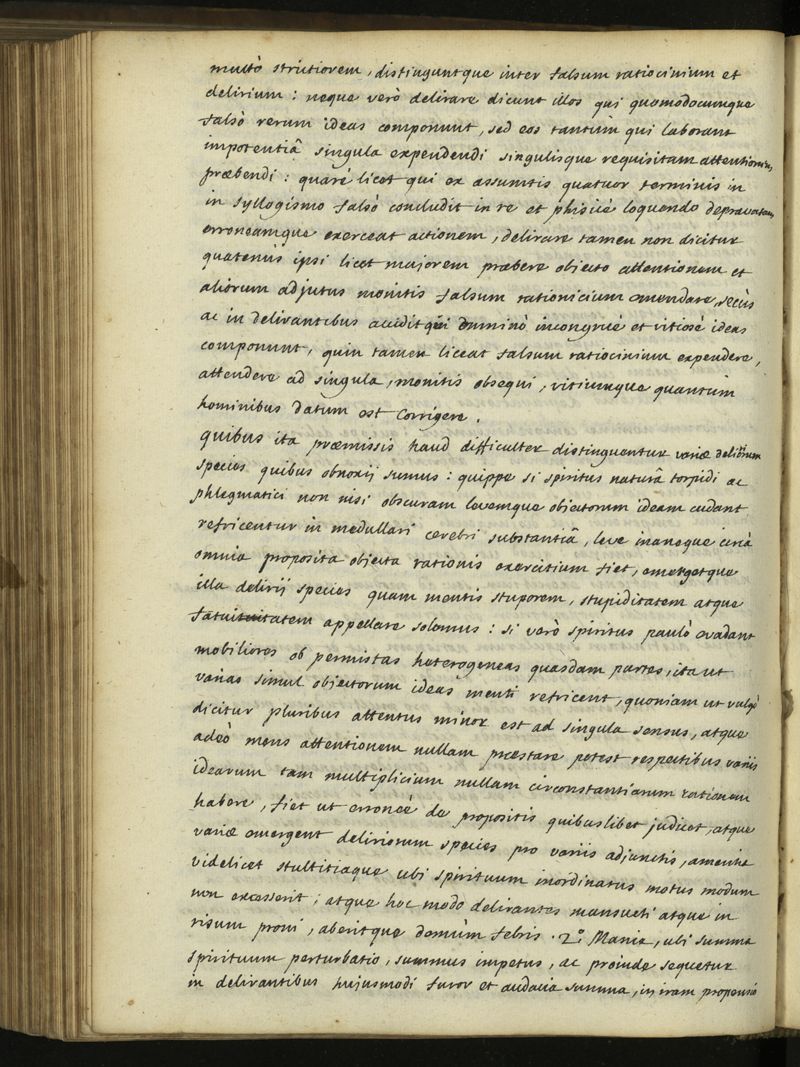 multò strictiorem, distinguntque inter falsum ratiocinium et
delirium : neque verò delirare dicunt illos qui quomodocumque
falsò rerum ideas componunt, sed eos tantùm qui laborant
impotentiâ singula expendendi singulisque requisitam attentionem
præbendi : quare licet qui ex assumtis quatuor terminis in
in syllogismo falsò concludit in re et phisicè loquendo depravatam
erroneamque exerceat actionem, delirare tamen non dicitur
quatenùs ipsi licet majorem præbere objecto attentionem et
aliorum adjutus monitis falsum rationicium emendare, secùs
ac in delirantibus accidit qui omninò incongruè et vitiosè ideas
componunt, quin tamen liceat falsum ratiocinium expendere,
attendere ad singula, monitis obsequi, vitiumque quantum
hominibus datum est corrigere.
quibus ita præmissis haud difficulter distinguentur variæ deliriorum
species quibus obnoxij sumus : quippe si spiritus naturâ torpidi ac
phlegmatici non nisi obscuram levemque objectorum ideam cudant
refricentur in medullari cerebri substantiâ, leve inaneque circà
omnia proposita objecta rationis exercitium fiet, emergetque
illa delirij species quam mentis stuporem, stupiditatem atque
fatuitatem appellare solemus : si verò spiritus paulò evadant
mobiliores ob permistas heterogeneas quasdam partes, ita ut
varias simul objectorum ideas menti refricent, quoniam ut vulgò
dicitur pluribus attentus minor est ad singula sensus, atque
adeò mens attentionem nullam præstare potest respectibus variis
idearum tam multiplicium nullam circonstantiarum rationem
habere, fiet ut erroneè de propositis quibuslibet judicet, atque
variæ emergent deliriorum species pro variis adjunctis, amentia
videlicet stultitiaque ubi spirituum inordinatus motus modum
non excesserit ; atque hoc modo delirantes mansueti atque in
risum proni, aberitque demùm febris. 2.° Mania, ubi summa
spirituum perturbatio, summus impetus, ac proinde sequetur
in delirantibus hujusmodi furor et audacia summa, in iram propensio